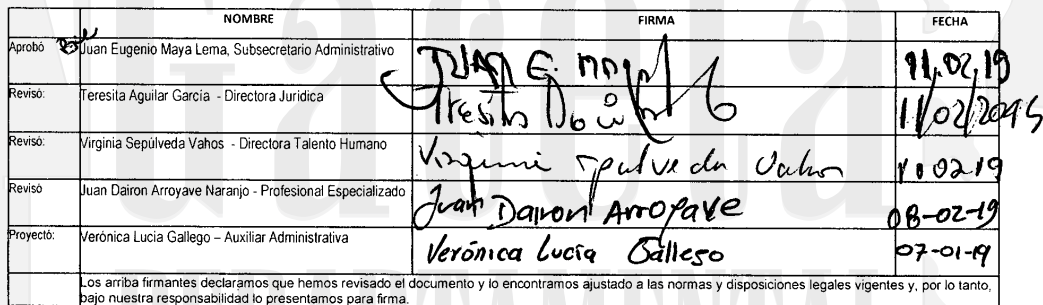 NOMBRE FIRMA FECHA
Aprobó Juan Eugenio Maya Lema, Subsecretario Administrativo JUAN E. 11.02.19
Revisó: Teresita Aguilar García - Directora Jurídica 11/02/2019
Revisó: Virginia Sepúlveda Vahos - Directora Talento Humano Virginia Sepulveda Vahos 11.02.19
Revisó Juan Dairon Arroyave Naranjo - Profesional Especializado Juan Dairon Arroyave 08-02-19
Proyectó: Verónica Lucia Gallego – Auxiliar Administrativa Verónica Lucía Gallego 07-01-19
Los arriba firmantes declaramos que hemos revisado el documento y lo encontramos ajustado a las normas y disposiciones legales vigentes y, por lo tanto,
bajo nuestra responsabilidad lo presentamos para firma.